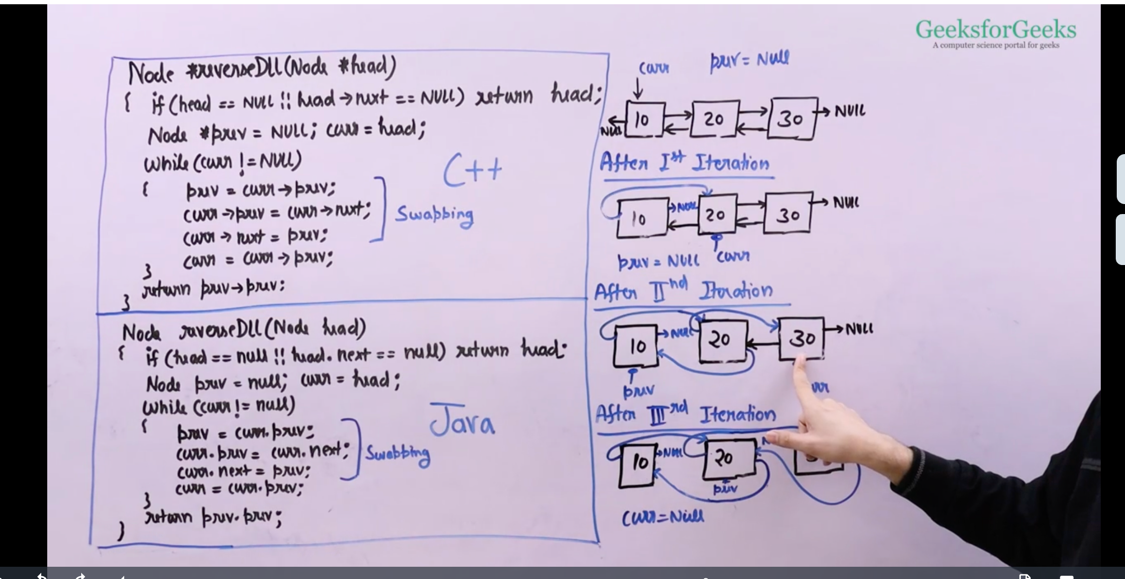 GeeksforGeeks
A computer science portal for geeks
Node *reverseDLL(Node *head)
{ if(head == NULL || head→next == NULL) return head;
Node *prev = NULL; curr = head;
while(curr != NULL)
{ prev = curr→prev;
curr→prev = curr→next;
curr→next = prev;
curr = curr→prev;
}
return prev→prev;
}
Swapping
C++
Node reverseDLL(Node head)
{ if(head == null || head.next == null) return head;
Node prev = null; curr = head;
while(curr != null)
{ prev = curr.prev;
curr.prev = curr.next;
curr.next = prev;
curr = curr.prev;
}
return prev.prev;
}
Swapping
Java
curr prev = NULL
NULL 10 20 30 → NULL
After Ist Iteration
10 → NULL 20 30 → NULL
prev = NULL curr
After IInd Iteration
10 → NULL 20 30 → NULL
prev
After IIIrd Iteration
10 → NULL 20
prev
curr = NULL